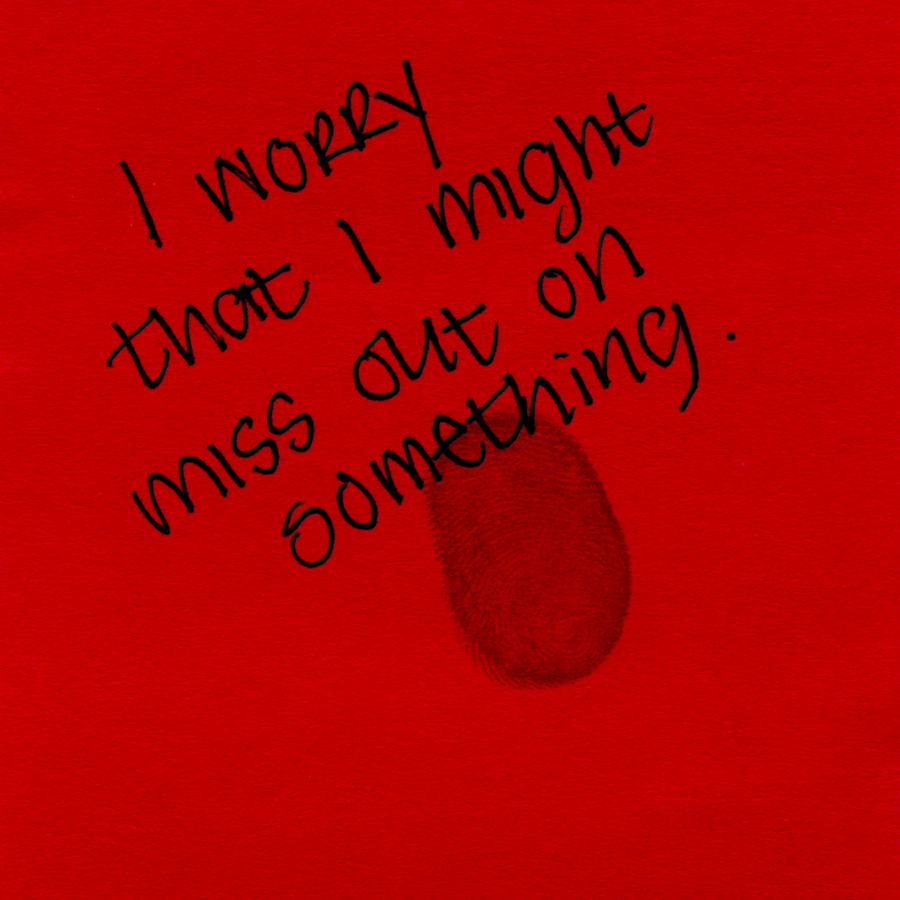 I WORRY
that I might
miss out on
something.